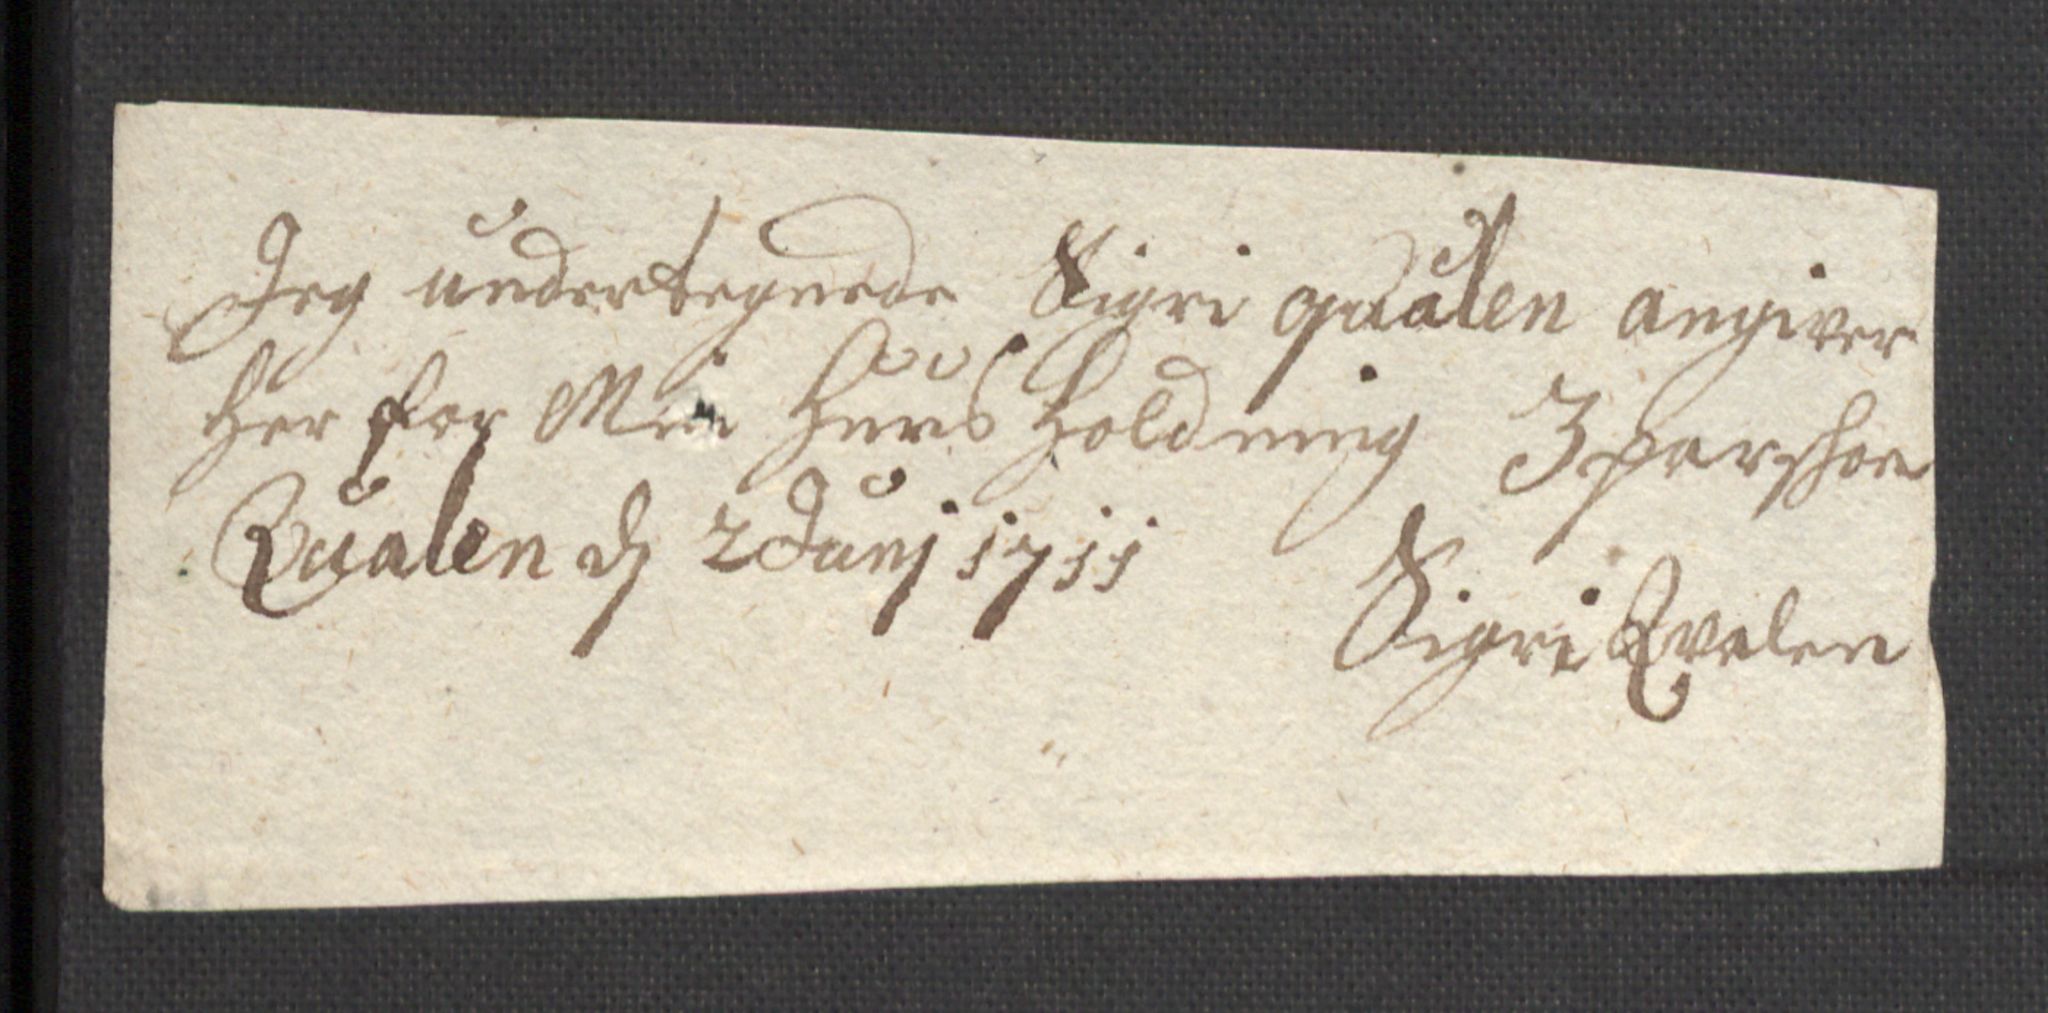 Jeg undertegnede Sigri qualen angiver
her for Min huus holdning 3 pershon
Qualen d 2 Junj 1711
Sigri Qvalen